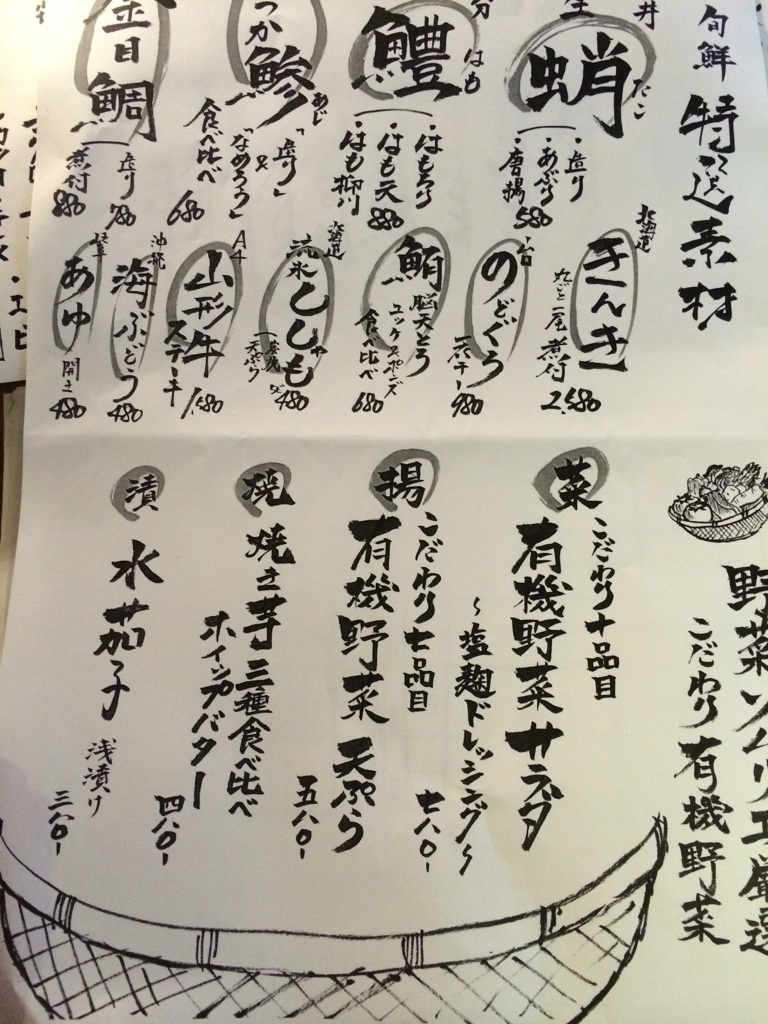 旬鮮
特選素材
蛸
たこ
・造り
・あぶり
・唐揚
580
鱧
はも
・はも天
・はも柳川
880
鯵
あじ
「造り」
&
「なめろう」
食べ比べ
680
金目鯛
造り
780
煮付
880
北海道
きんき
丸ごと一尾煮付
2,580
のどぐろ
一夜干し
980
鮪
脳天とろ
ユッケ&ポンズ
食べ比べ
680
北海道
流氷ししゃも
天ぷら
480
A4
山形牛
ステーキ
1,580
沖縄
海ぶどう
480
あゆ
開き
480
野菜ソムリエ厳選
こだわり有機野菜
菜
こだわり十品目
有機野菜サラダ
~塩麹ドレッシング~
七八〇-
揚
こだわり七品目
有機野菜天ぷら
五八〇-
焼
焼き芋三種食べ比べ
ホイップバター
四八〇-
漬
水茄子
浅漬け
三八〇-